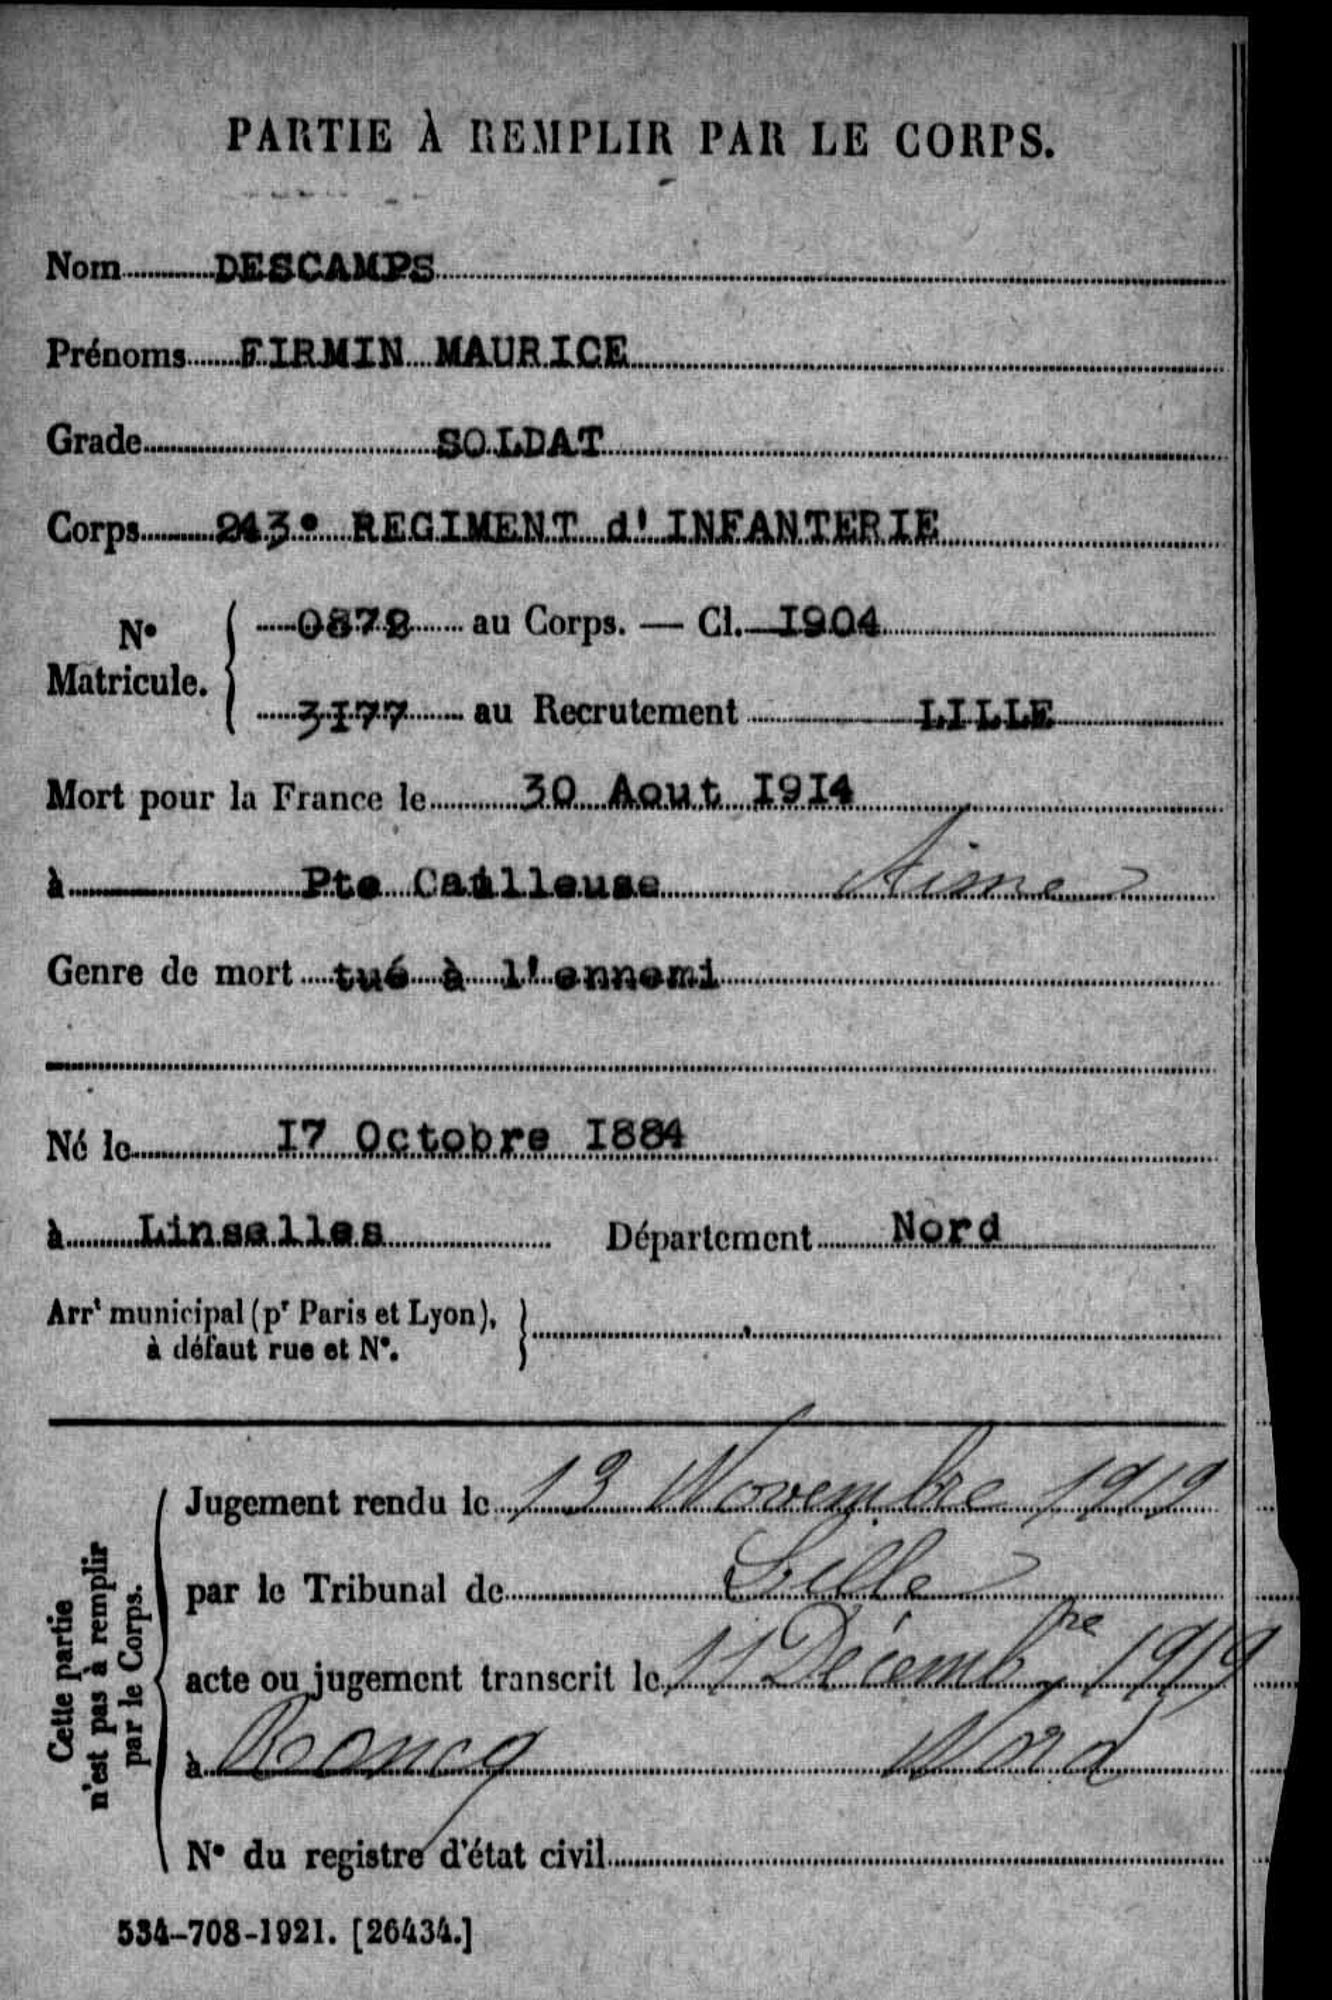 PARTIE À REMPLIR PAR LE CORPS.
Nom DESCAMPS
Prénoms FIRMIN MAURICE
Grade SOLDAT
Corps 243e REGIMENT d' INFANTERIE
N° Matricule.
0872 au Corps. — Cl. I904
3I77 au Recrutement LILLE
Mort pour la France le 30 Aout I9I4
à Pte Cailleuse Aisne
Genre de mort tué à l'ennemi
Né le I7 Octobre I884
à Linselles Département Nord
Arrt municipal (pr Paris et Lyon),
à défaut rue et N°.
Cette partie
n'est pas à remplir
par le Corps.
Jugement rendu le 13 Novembre 1919
par le Tribunal de Lille
acte ou jugement transcrit le 11 Décembre 1919
à Roncq Nord
N° du registre d'état civil
534-708-1921. [26434.]